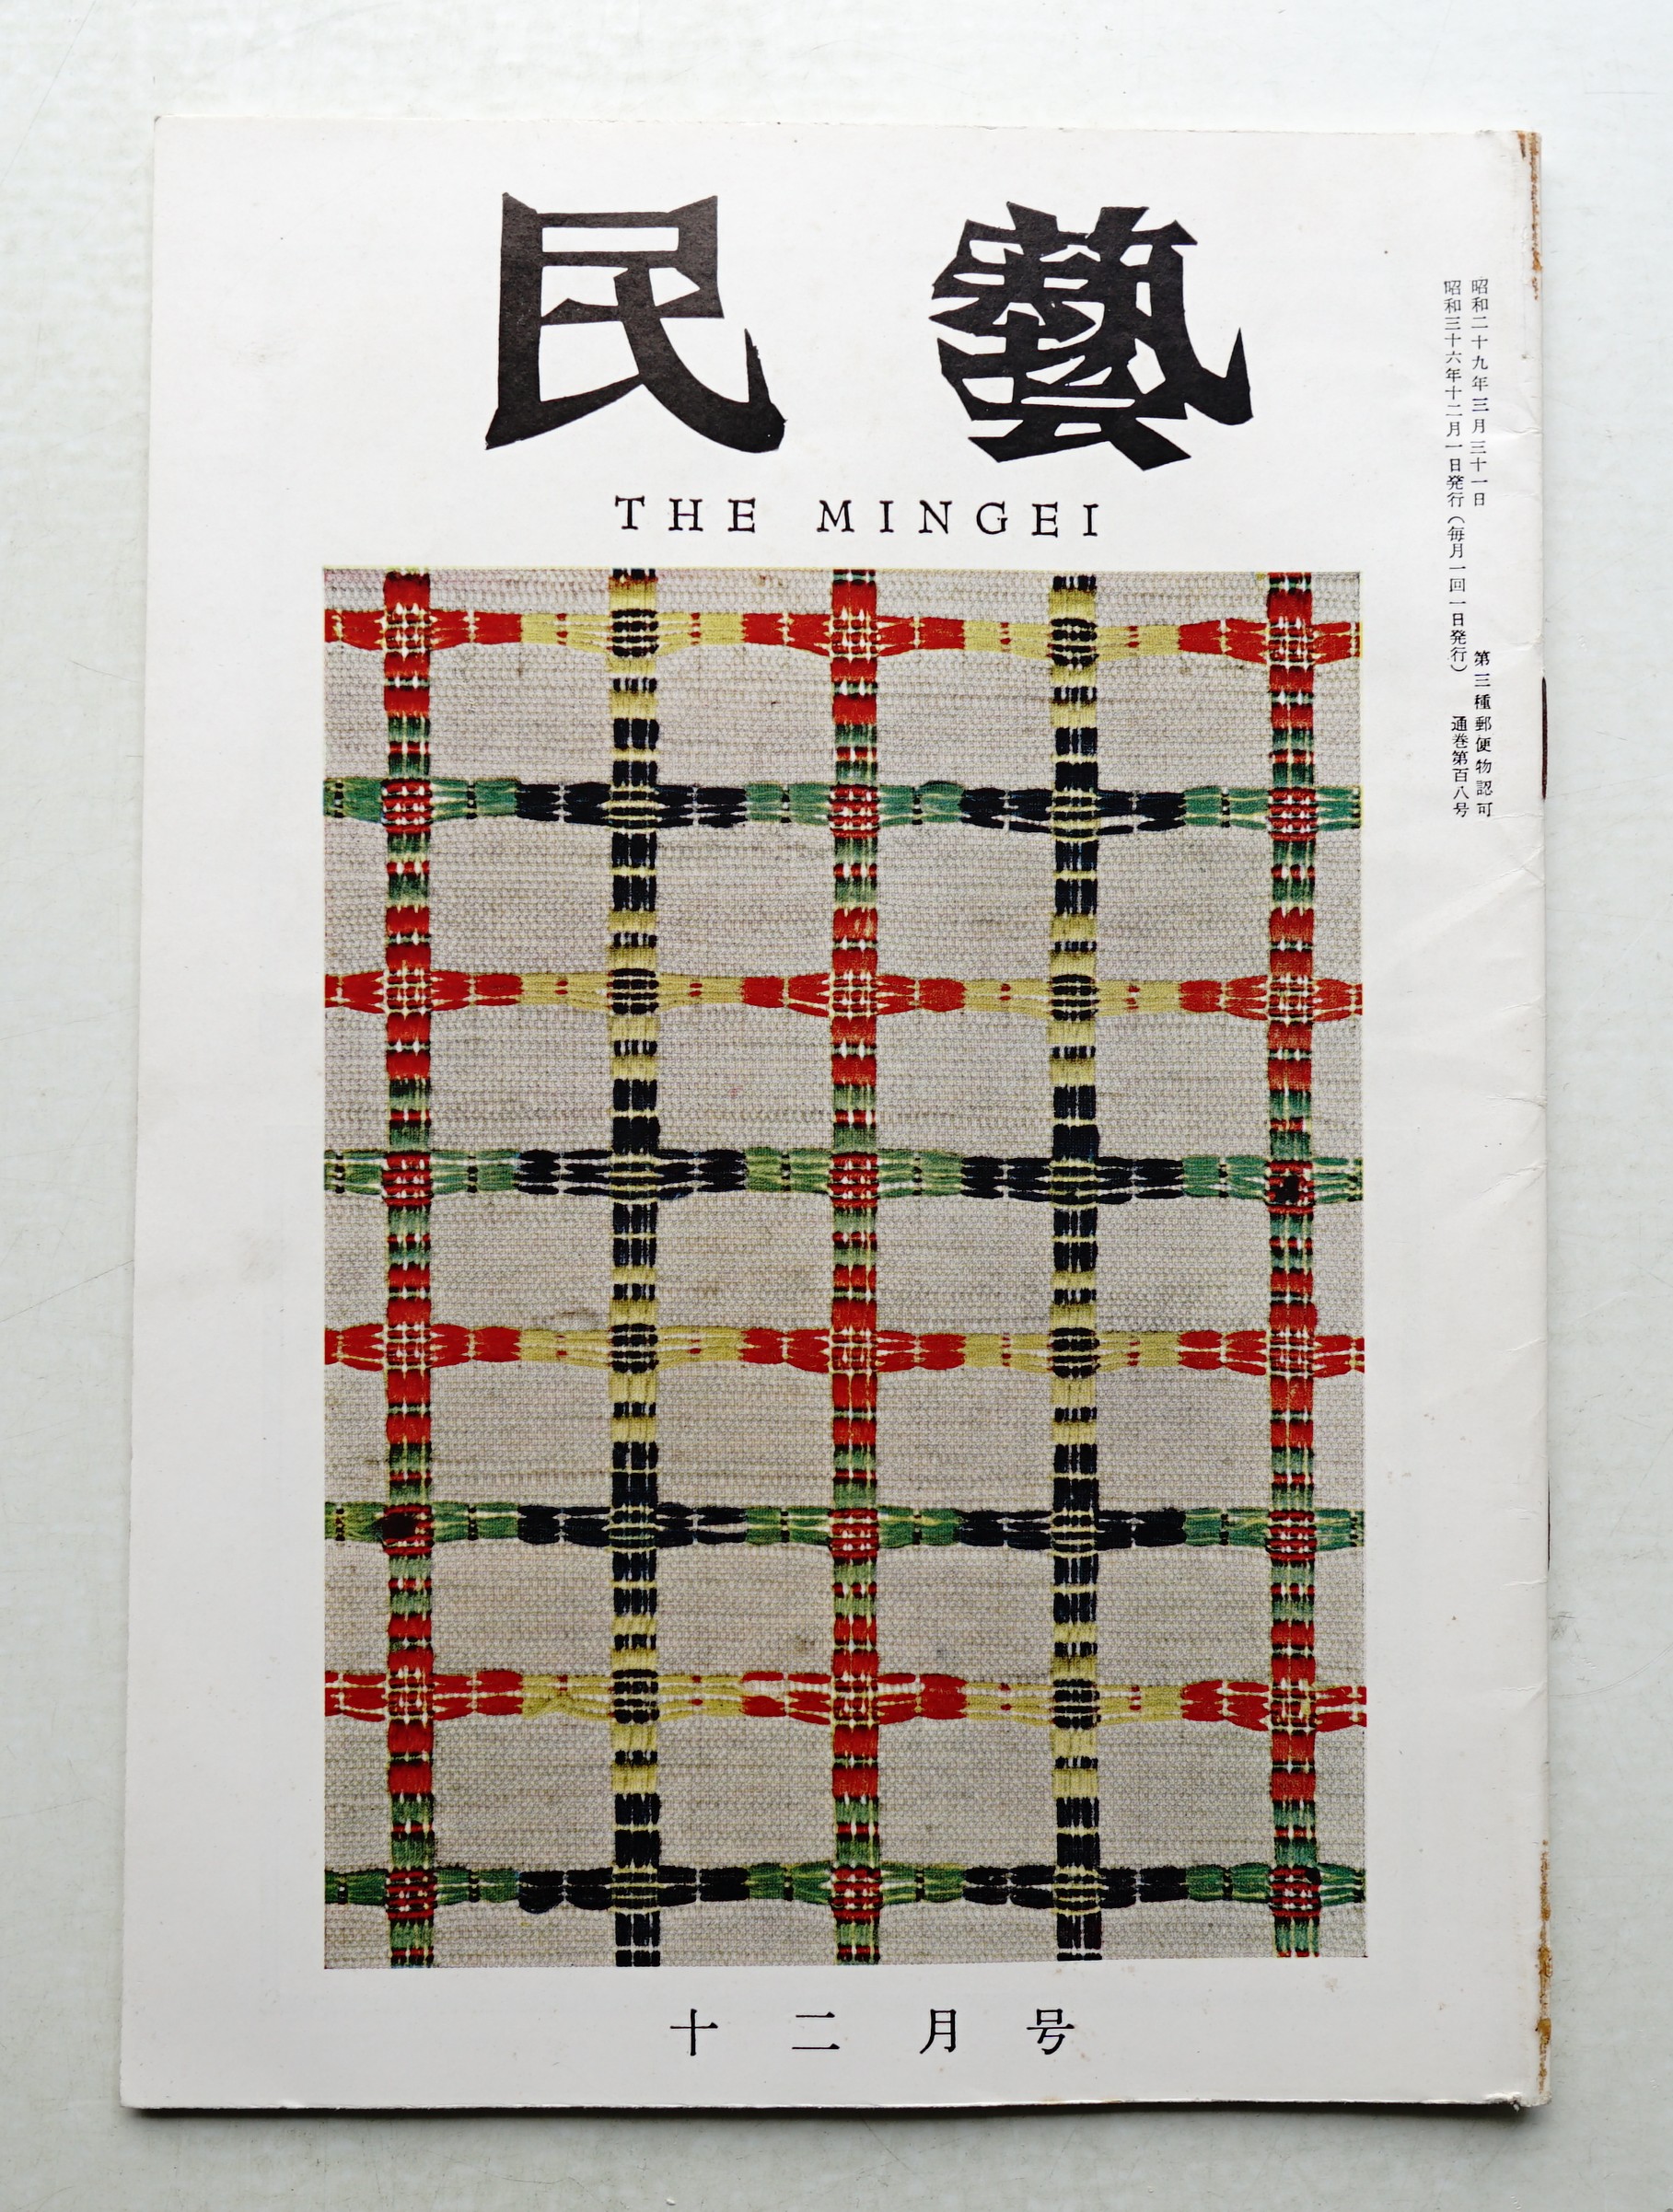 民藝
THE MINGEI
昭和二十九年三月三十一日 第三種郵便物認可
昭和三十六年十二月一日発行(毎月一回一日発行) 通巻第百八号
十二月号